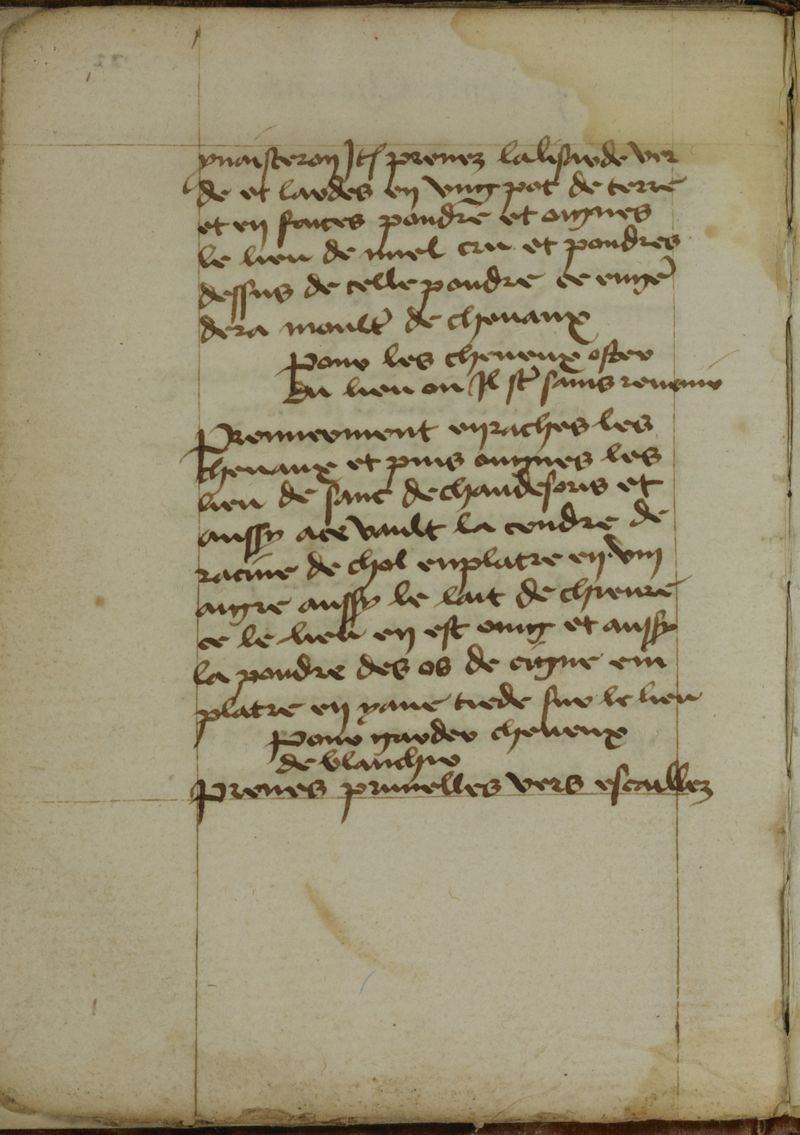 ynaisteron Jtē prenez la lisarde ver
de et lardes en vng pot de terre
et en faites pondre et oignes
le lieu de miel cru et pondres
dessus de celle pondre ce enge
dera moult de cheuaux
Pour les cheueux oster
du lieu ou Jl sōt sains reuenir
Premierement enraches les
cheuaux et puis oingnes les
lieu de sanc de chaudesoris et
aussy ace vault la cendre de
racine de chol enplatre en vin
aigre aussy le lait de chieure
ce le lieu en est oing et aussy
la poudre des os de cigne em
platre en yaue tiede sur le lieu
Pour garder cheueux
de blanchir
Prenes prunelles vers escaillez